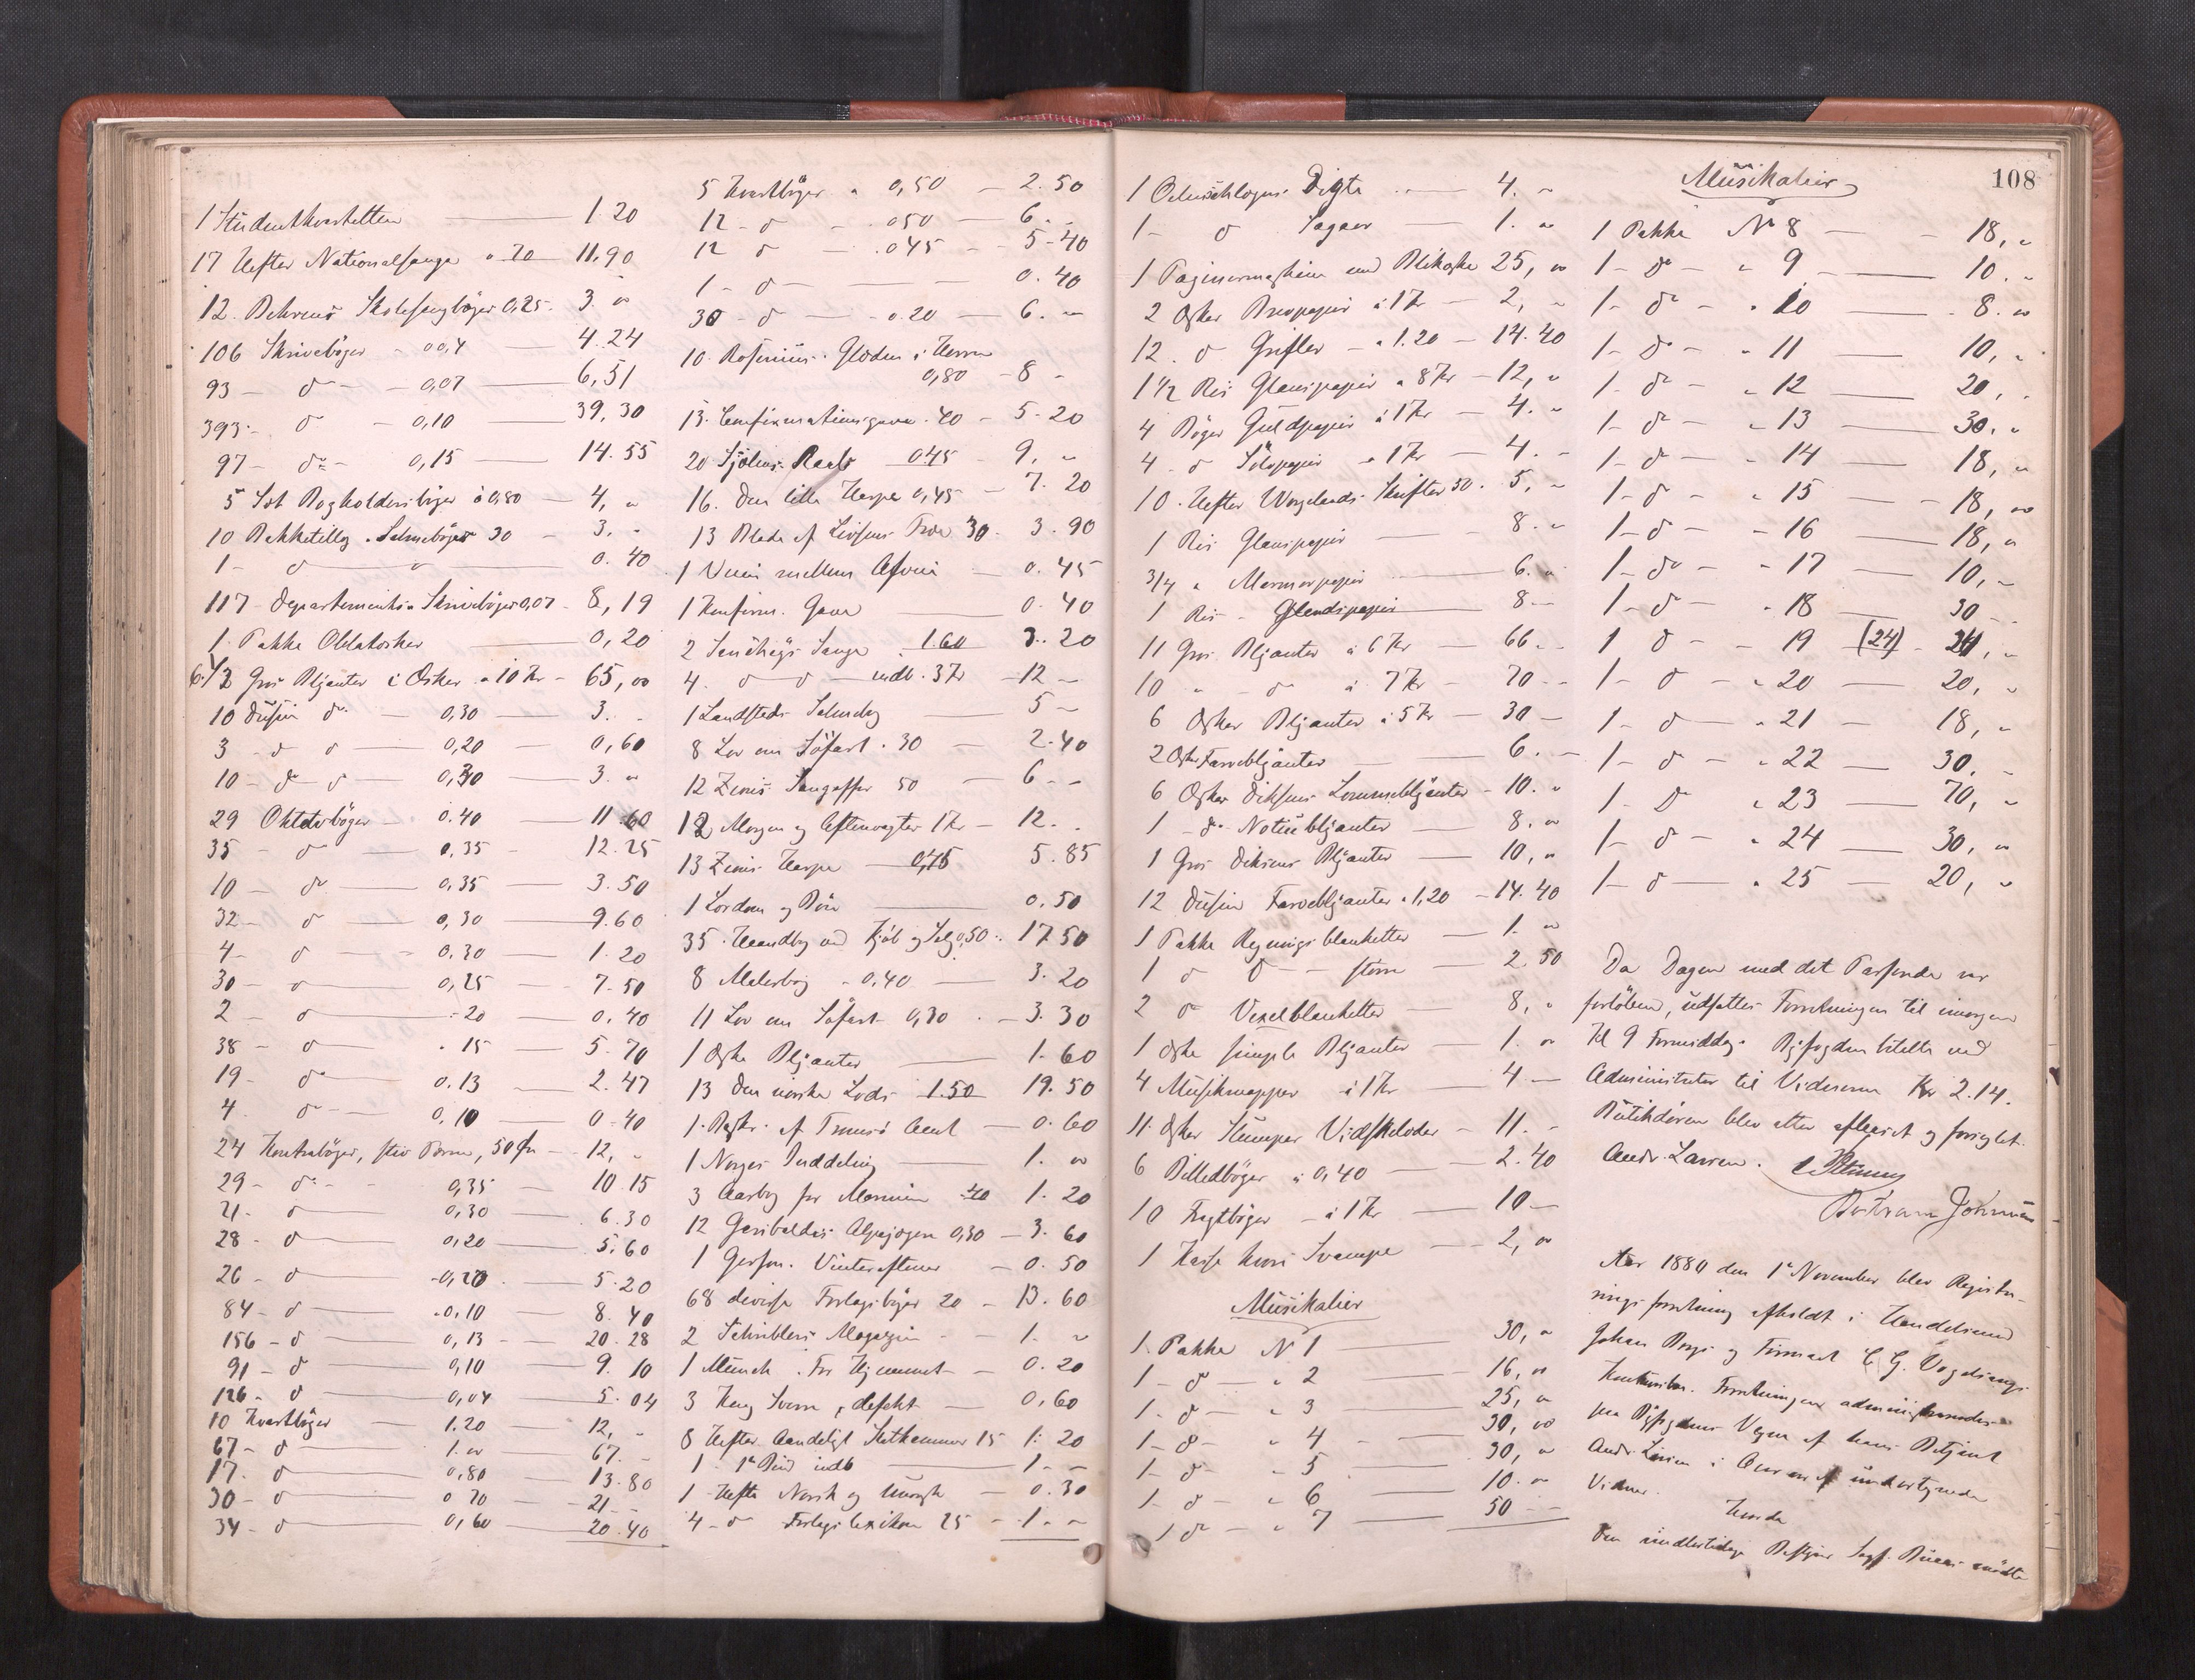 1 Studentkvartetten — 1.20
17 Hefter Nationalsange a 70 — 11.90
12. Behrens Skolesangbøger 0,25. 3. "
106 Skrivebøger - 00,4 — 4.24
93 - do - - 0,07 — 6,51
393 - do - 0,10 — 39,30
97 - do - 0,15 — 14.55
5 Sæt Bogholderibøger à 0,80 — 4, "
10 Pakketillæg . Salmebøger 30 — 3. "
1 - do — 0.40
117 - Departements - Skrivebøger 0,07 - 8,19
1. Pakke Oblatæsker — 0,20
6 1/2 Gros Bljanter i Æsker a 10 Kr - 65, "
10 Dusin do — 0,30 — 3. -
3 - do do — 0,20 — 0,60
10 - do do — 0,30 — 3. "
29 Oktavbøger — 0.40 — 11.60
35 - do — 0,35 - 12.25
10 - do — 0,35 — 3.50
32 - do — 0,30 9.60
4 - do — 0.30 — 1.20
30 - do — 0,25 — 7.50
2 - do — - 20 — 0.40
38 - do — . 15 — 5.70
19 - do — 0.13 — 2.47
4. do — 0,10 — 0.40
24 Kontrabøger, stiv Perm, 50 Øre — 12, "
29 - do - - 0,35 — 10.15
21 - do — 0,30 — 6.30
28 - do — 0,20 — 5.60
26 - do — 0,20 — 5.20
84 - do — 0,10 — 8.40
156 - do — 0,13 — 20.28
91 - do — 0,10 — 9.10
126 - do — 0,04 — 5.04
10 Kvartbøger — 1.20 — 12, -
67 - do — 1. " — 67. -
17. do — 0,80 — 13.80
30 - do — 0 70 — 21 - -
34 - do — 0,60 — 20.40
5 Kvartbøger a 0,50 — 2.50
12 - do - . 0 50 — 6. -
12 do — . 0 45 - - 5.40
1 - do — 0.40
30 - do — 0.20 — 6. "
10. Rosenius: Glæden i Herren
0,80 - 8 -
13. Confirmationsgave . 40 - 5.20
20 0 45 - 9. "
16. Den lille Harpe 0,45 - 7.20
13 Blade af 30 - 3.90
1 — 0.45
1 Konfirm. Gave — 0.40
2 Sange . 1.60 3.20
4. do do — indb. 3 Kr — 12 -
1 Landstads Salmebog — 5 -
8 Lov om Søfart . 30 — 2.40
12 Zions 50 — 6 - -
12 Morgen og Aftenvægter 1 Kr — 12. -
13 Zions Harpe — 0,45 5.85
1 Lørdom og Bøn — 0.50
35. Haandbog ved Kjøb og Salg 0,50 . 17.50
8 Malerbog - 0,40 — 3.20
11 Lov om Søfart 0,30 . — 3.30
1 Æske Bljanter — 1.60
13 Den norske Lods 1.50 19.50
1. af Tromsø Amt — 0.60
1 Norges Inddeling — 1. "
3 Aarbog for 40 1.20
12 Garibaldis Alpejægere 0,30 — 3.60
1 Vinteraftener — 0.50
68 diverse Forlagsbøger 20 — 13.60
2 Magazin - - 1. "
1 Munch . For Hjemmet — 0.20
3 Kong Sverre, defekt — 0,60
8 Hefter Aandeligt Skatkammer 15 1.20
1 - 1ste Bind indb — 1 - -
1 Hefte Norsk og — 0.30
4 - do Forlags lexikon 25 - 1 - -
1 Oehlenschlægers Digte — 4. "
1 - do Sagaer — 1. "
1 Paginermaskine med Blikæske 25, "
2 Æsker Brevpapir à 1 Kr — 2, "
12. do Grifler - a 1.20 — 14.40
1 1/2 Ris Glanspapir a 8 Kr — 12, "
4 Bøger Guldpapir à 1 Kr — 4. "
4 - do Sølvpapir a 1 Kr — 4. -
10. Hefter Wergelands Skrifter 50. 5, -
1 Ris Glanspapir — 8. "
3/4 " Marmorpapir — 6. "
1 Ris - Glandspapir 8 -
11 Gros Bljanter à 6 Kr — 66 - -
10 " - do à 7 Kr — 70 - -
6 Æsker Bljanter à 5 Kr — 30 -
2 Æsker Farvebljanter — 6. -
6 Æsker Diksons Lommebljanter - 10. "
1 - do Notitsbljanter — 8. "
1 Gros Diksons Bljanter — 10, "
12 Dusin Farvebljanter a 1,20 - 14.40
1 Pakke Regnings blanketter — 1. "
1 do do - større — 2.50
2 do Vexelblanketter — 8, "
1 Æske simple Bljanter — 1. "
4 Musikmapper à 1 Kr — 4 -
11. Æsker Stumper Vidskelæder - 11. -
6 Billedbøger à 0,40 — 2.40
10 Fragtbøger - à 1 Kr — 10 -
1 Kasse Svampe — 2, "
Musikalier
1. Pakke No 1 — 30, "
1 - do — " 2 — 16, "
1 - do — " 3 — 25, "
1 - do - " 4 — 30, "
1 - do - " 5 — 30, "
1 - do - " 6 — 10. "
1 do - " 7 — 50 - -
108
Musikalier
1 Pakke No 8 — 18, "
1 - do - " 9 — 10. "
1 - do - " 10 — 8. "
1 - do - " 11 — 10, "
1 - do - " 12 — 20, "
1 - do - " 13 — 30. "
1 - do - " 14 — 18, "
1 - do - " 15 — 18, "
1 - do - - 16 — 18, "
1 - do - - 17 — 10, "
1 - do - " 18 — 30 - -
1 do - - 19 (24) - 24, "
1 - do - " 20 — 20, "
1 - do — " 21 — 18, "
1 - do - " 22 — 30. -
1 - do " 23 — 70, "
1 - do - " 24 — 30, "
1 - do — " 25 — 20, "
Da Dagen med det Passerede var
forløben, udsattes Forretningen til imorgen
Kl 9 Formiddag. Byfogden bitalte ved
Administrator til Vidnerne Kr 2.14.
Butikdøren blev atter aflaaset og forseglet.
Andr. Larsen.
Bertram Johnsen
Aar 1880 den 1ste November blev Registre-
rings forretning afholdt i Handelsmand
Johan og Firmaet C. G. Vogelsangs
Konkursbo. Forretningen administreredes
paa Byfogdens Vegne af hans Betjent
Andr. Larsen i Overvær af undertegnede
Vidner.
Hvorda
Den midlertidige Bestyrer Sagf. mødte